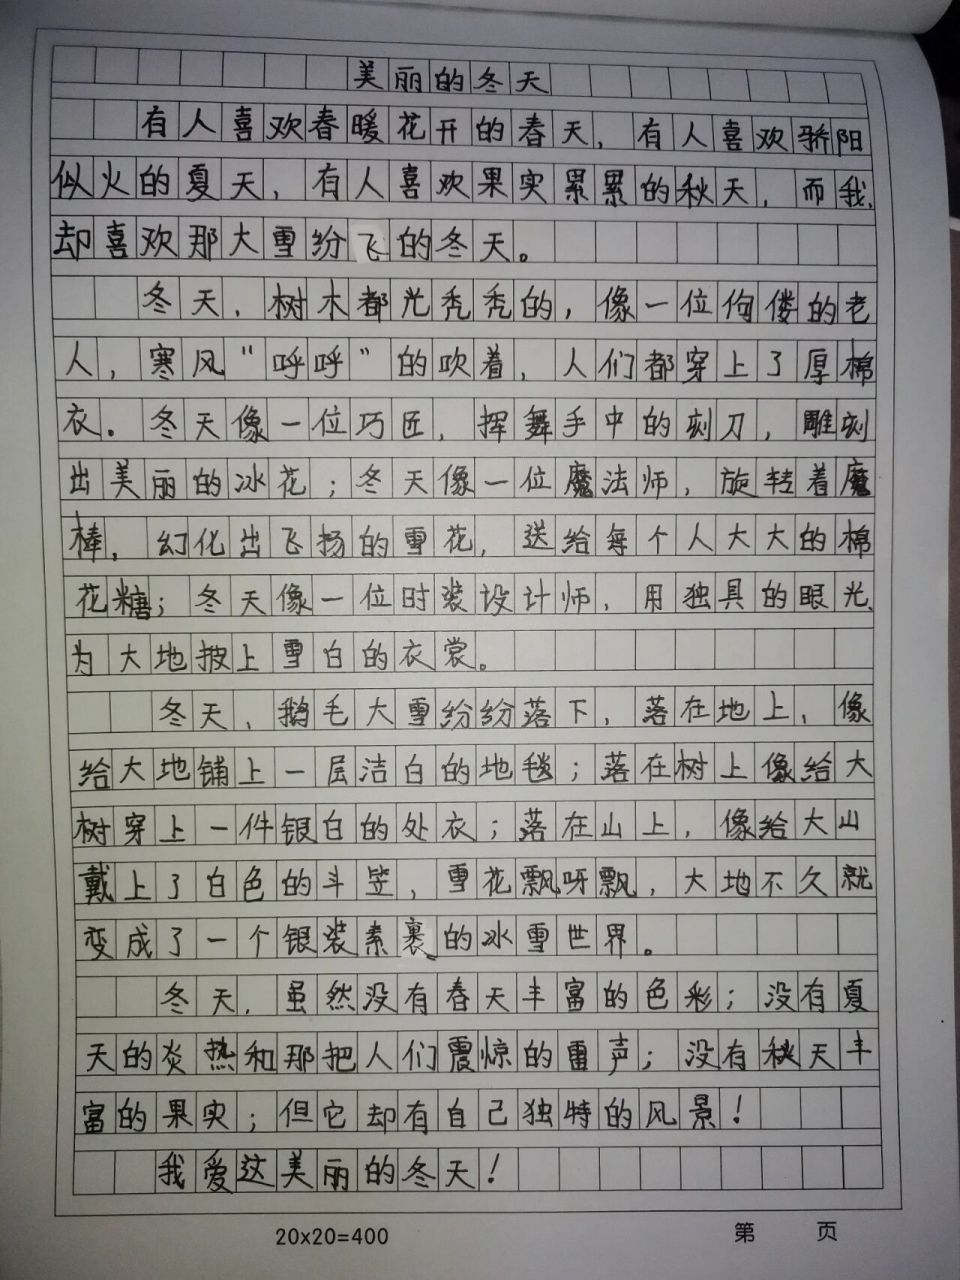 美丽的冬天
有人喜欢春暖花开的春天，有人喜欢骄阳
似火的夏天，有人喜欢果实累累的秋天，而我，
却喜欢那大雪纷飞的冬天。
冬天，树木都光秃秃的，像一位佝偻的老
人，寒风“呼呼”的吹着，人们都穿上了厚棉
衣。冬天像一位巧匠，挥舞手中的刻刀，雕刻
出美丽的冰花；冬天像一位魔法师，旋转着魔
棒，幻化出飞扬的雪花，送给每个人大大的棉
花糖；冬天像一位时装设计师，用独具的眼光、
为大地披上雪白的衣裳。
冬天，鹅毛大雪纷纷落下，落在地上，像
给大地铺上一层洁白的地毯；落在树上像给大
树穿上一件银白的处衣；落在山上，像给大山
戴上了白色的斗笠，雪花飘呀飘，大地不久就
变成了一个银装素裹的冰雪世界。
冬天，虽然没有春天丰富的色彩；没有夏
天的炎热和那把人们震惊的雷声；没有秋天丰
富的果实；但它却有自己独特的风景！
我爱这美丽的冬天！
20x20=400 第 页